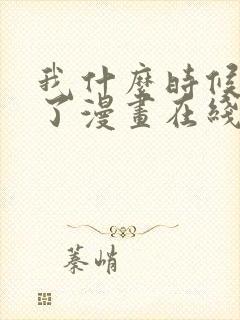 我什麽時候
了漫畫在綫
蓁峭